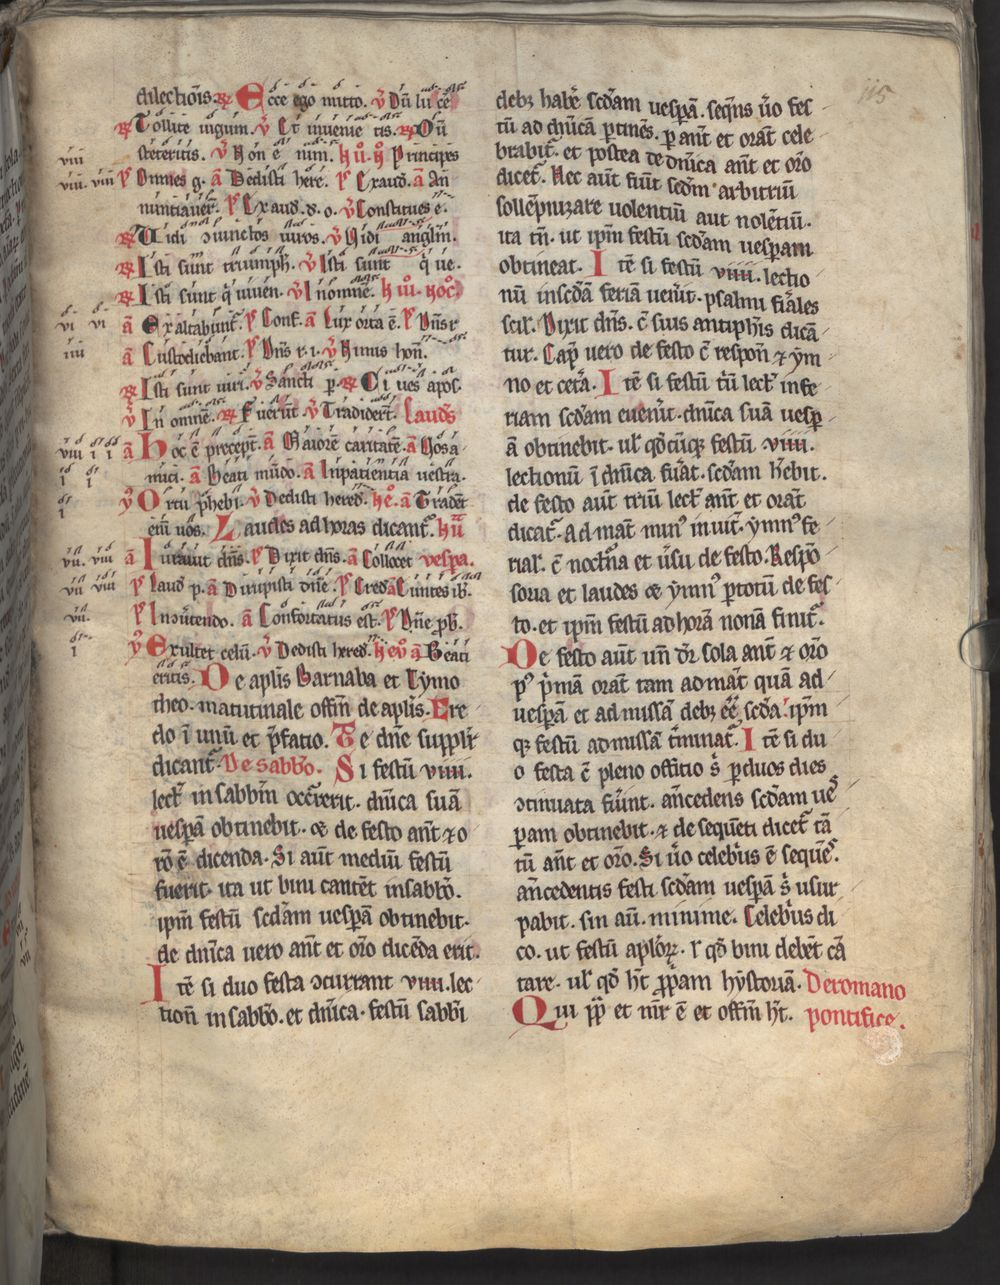 115
dilectiōis. ℟ Ecce ego mitto. ℣ Dū lucē
℟ Tollite iugum. ℣ Et inuenietis. ℟ Dū
steteritis. ℣ Non ē nim. Principes
viii
viii. viii ℣ Omnes g. a Dedisti here. ℣ Exaud. a An
nuntiauer̄. ℣ Exaud. d. o. ℣ Constitues e.
℟ Uidi ↄiunctos uiros. ℣ Uidi anglm̄.
℟ Isti sunt triumph. ℣ Isti sunt q̄ ue.
℟ Isti sunt q̄ uiuen. ℣ In omnē.
vi vi a Exaltabunt. ℣ Conf. a Lux orta ē. ℣ Dn̄s r
iiii a Custodiebant. ℣ Dn̄s r. i. ℣ Nimis hon̄.
℟ Isti sunt uiri. ℣ Sancti p. ℟ Ciues apos.
℣ In omnē. ℟ Fuerūt. ℣ Tradidert̄. Laud̄s
viii i i a Hoc ē precept̄. a Maiorē caritatē. a Uos a
i i mici. a Beati mūdo. a In patientia uestra.
i ℣ Ortu phebi. ℣ Dedisti hered̄. a Tradēt
eīm uos. Laudes ad horas dicant̄.
vii. viii a Iurauit dn̄s. ℣ Dixit dn̄s. a Collocet vespa.
vii viii ℣ Laud p. a Dirupisti dn̄e. ℣ Credi a Euntes ib.
vii. ℣ In ↄuertendo. a Confortatus est. ℣ Dn̄e pb.
i ℣ Exultet celū. ℣ Dedisti hered̄. Beati
eritis. De aplīs Barnaba et Tymo
theo. matutinale offm̄ de aplīs. Cre
do ī unū et p̄fatio. Te dn̄e suppli
dicant̄. De sabb̄o. Si festū viiii.
lect̄. in sabbm̄ occr̄rerit. dn̄ica suā
uesꝑā obtinebit. ⁊ de festo ant̄ ⁊ o
rō ē dicenda. Si aut̄ mediū festū
fuerit. ita ut bini cantēt in sabb̄o.
ip̄m festū scd̄am uesꝑā obtinebit.
de dn̄ica uero ant̄ et orō dicēda erit.
Itē si duo festa ↄcurrant viiii. lec
tion̄ in sabb̄o. et dn̄ica. festū sabbi
debꝫ habe᷑ scd̄am uesꝑā. seq̄ns ūo fes
tū ad dn̄icā ꝑtinēs. ꝑ ant̄ et orat̄ cele
brabit᷑. et postea de dn̄ica ant̄ et orō
dicet᷑. Nec aut̄ fiūt scdm̄ arbitriū
sollēpnizare uolentiū aut nolētiū.
ita tn̄. ut ip̄m festū scd̄am uesꝑam
obtineat. Itē si festū viiii. lectio
nū in scd̄a feria uener̄it. psalmi fīales
scil. Dixit dn̄s. c̄ suis antiphīs dicā
tur. Cap̄ uero de festo c̄ respon̄ ⁊ ym
no et cet̄a. Itē si festū t̄ū lect̄ in fe
riam scd̄am euener̄it. dn̄ica suā uesꝑ
ā obtinebit. ul̄ qd̄cūqꝫ festū viiii.
lectionū ī dn̄ica fuāt. scd̄am h̄ebit.
de festo aut̄ triū lect̄ ant̄ et orat̄
dicat᷑. ad mat̄ min᷒ inuit̄. ymn᷒ fe
rial̄. c̄ noct̄na et ūsu de festo. Respō
soria et laudes ⁊ ymn᷒ ꝑ totū de fes
to. et ip̄m festū ad horā nonā finit᷑.
De festo aut̄ un̄ dr̄ sola ant̄ ⁊ orō
p᷒ p̄mā orat̄ tam ad mat̄ quā ad
uesꝑā et ad missā debꝫ ēē scd̄a. ip̄m
qꝫ festū ad missā t̄minat᷑. Itē si du
o festa c̄ pleno offitio s̄ ꝑ duos dies
ↄtinuata fūint. an̄cedens scd̄am ue
ꝑam obtinebit. ⁊ de sequēti dicet᷑ tā
tū ant̄ et orō. Si ūo celebri᷒ ē sequēs.
an̄cedentis festi scd̄am uesꝑā s̄ usur
pabit. sin aū. minime. Celebri᷒ di
co. ut festū aplōꝝ. ł qd̄ bini debēt cā
tare. ul̄ qd̄ ht̄ pp̄am hystoriā. De romano
Qui pp̄ et mr̄ ē et offm̄ ht̄. pontifice.